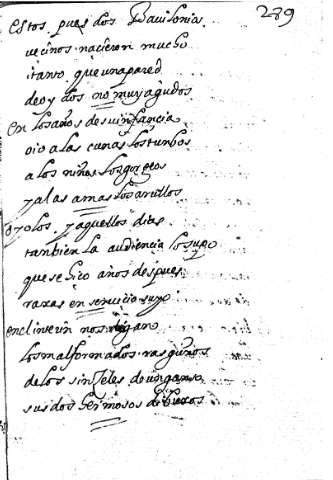 289
estos pues dos Bauilonia
vecinos nacieron mucho
itanto que una pared
de oydos no muy agudos
en los años de su infancia
oio a las cunas los tunbos
a los niños los gorgeos
y a las amas los arullos
oyolos y aquellos dias
tanbien la audiencia lo supo
que se hico años despues
raxas en seruicio suyo
en el interin nos digan
los mal formados rasguños
de los pinseles de un ganso
sus dos hermosos dibuxos